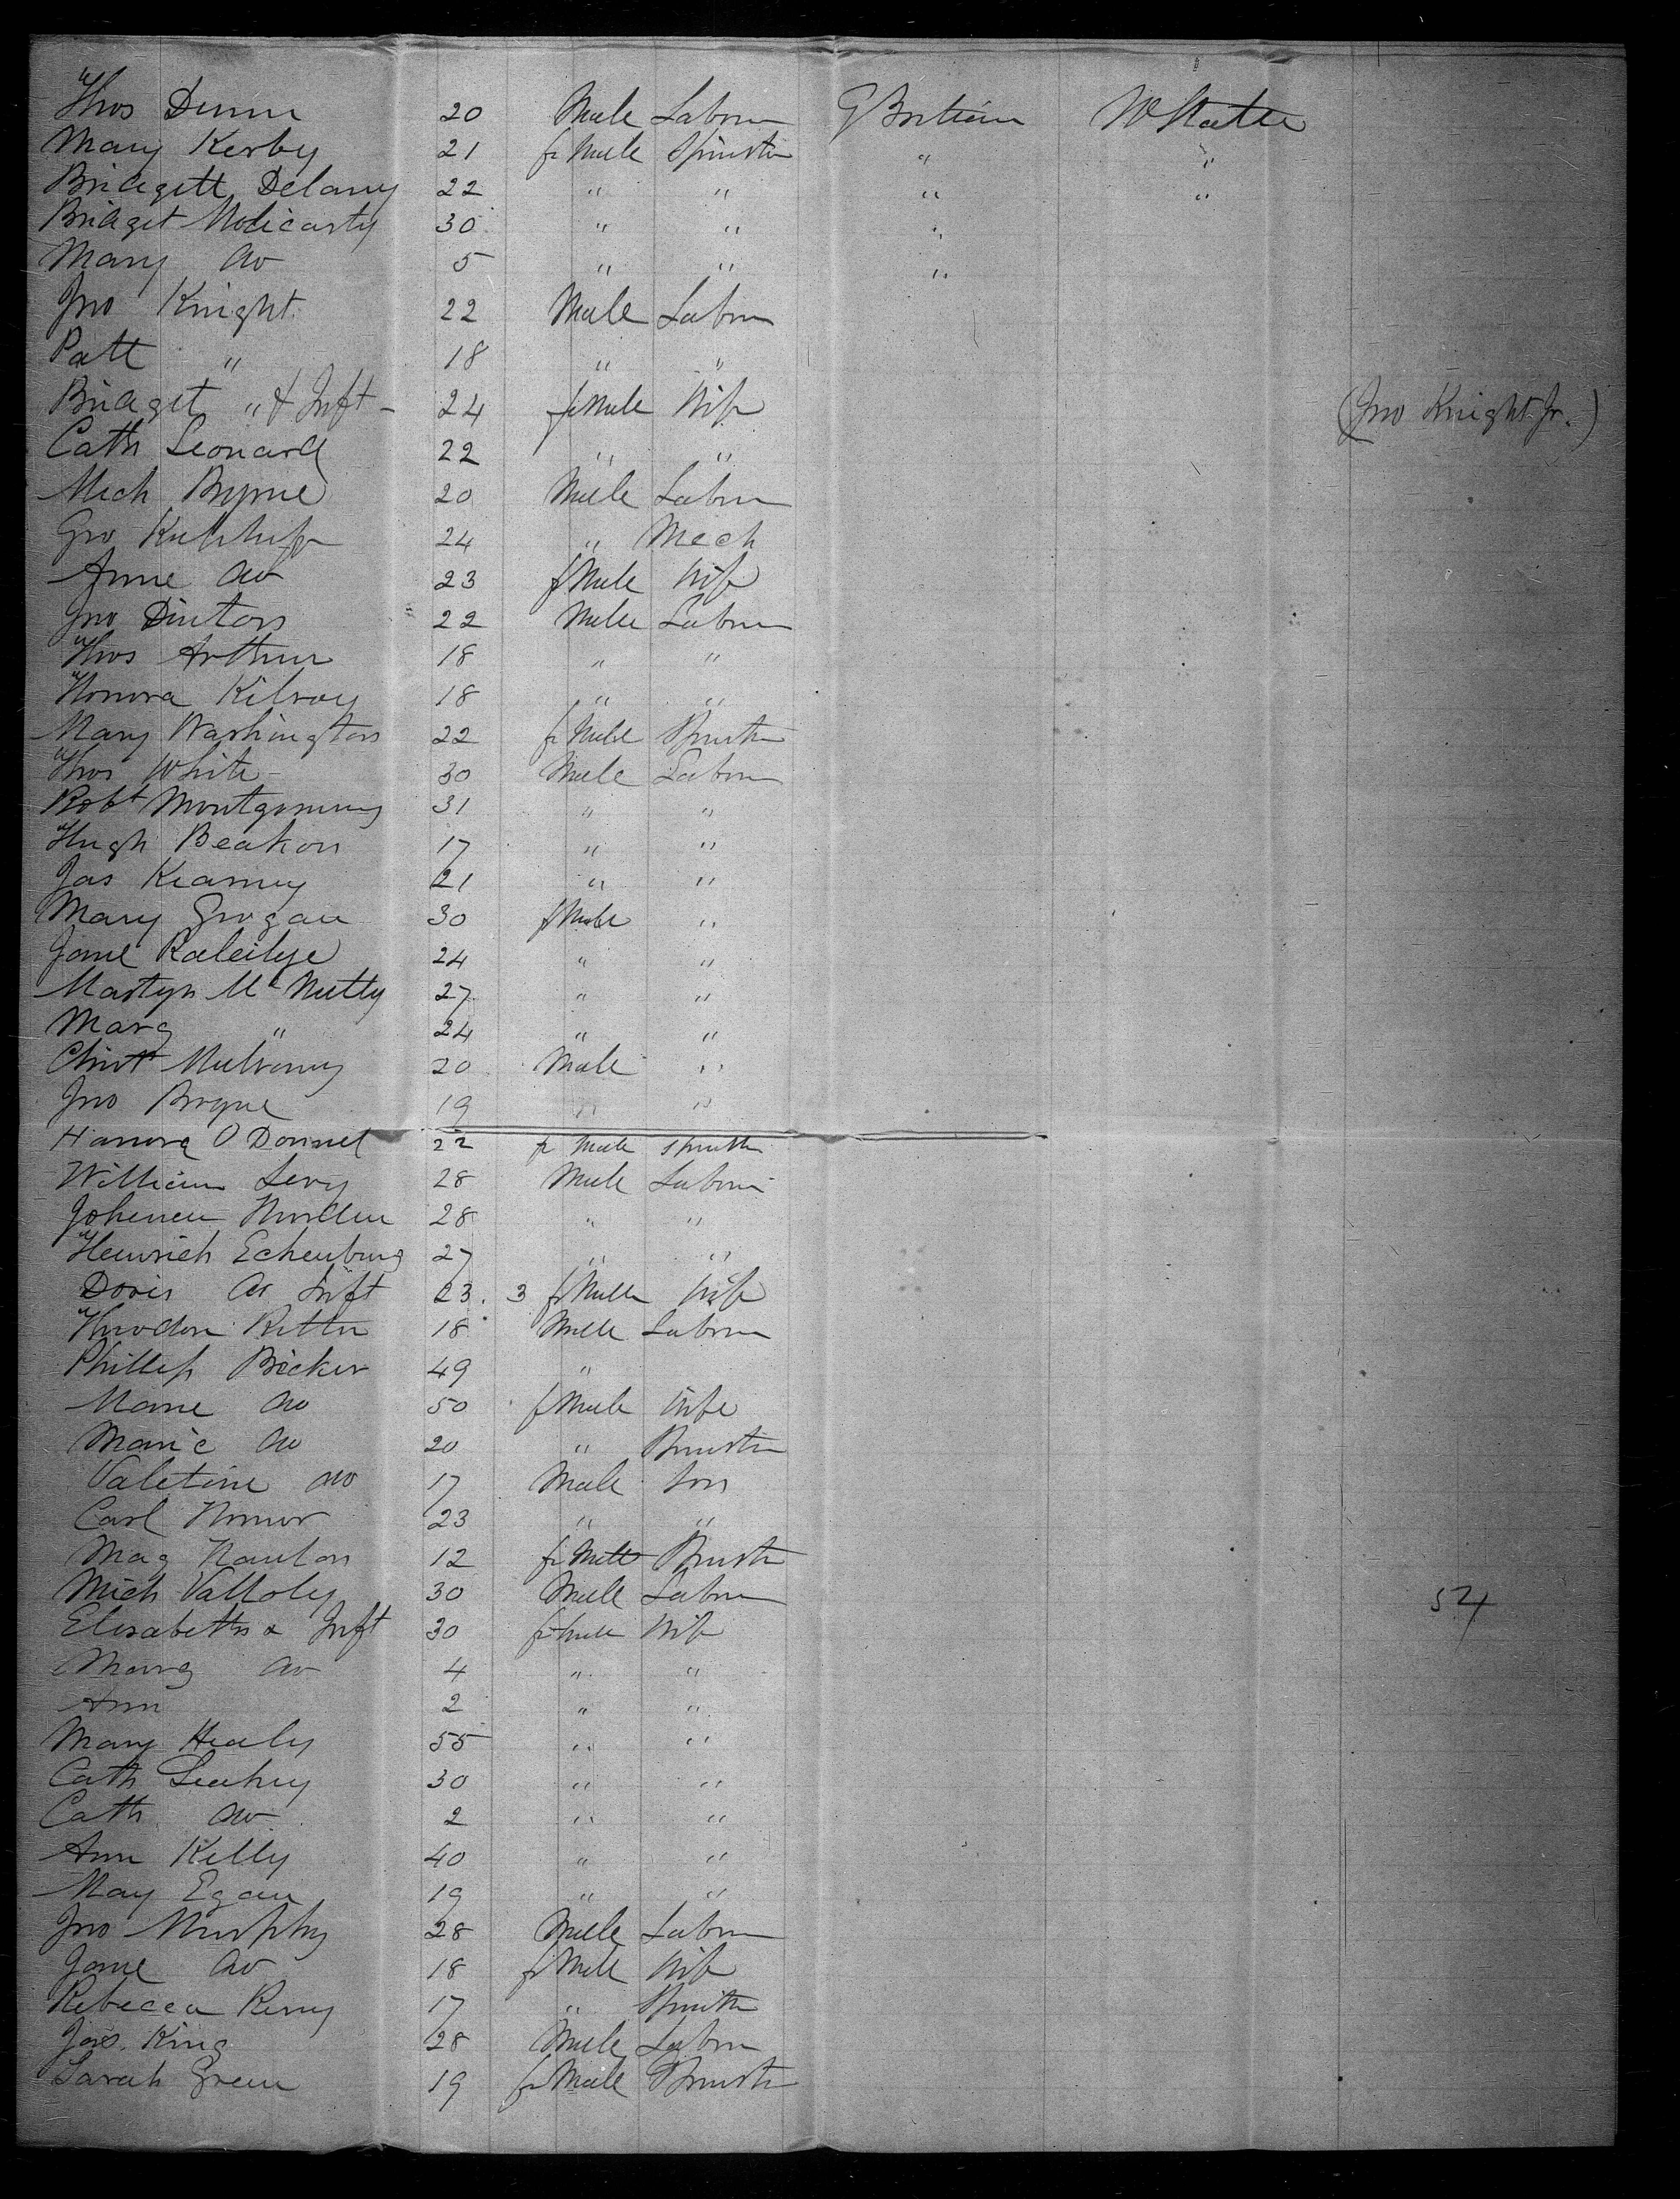 Thos Dunn 20 Male Labrr G Britain U State
Mary Kerby 21 fe Male Spinster " "
Bridgett Delany 22 " " " "
Bridget 30 " " "
Mary do 5 " " "
Jno Knight 22 Male Labrr
Patt " 18 " "
Bridget " & Inft - 24 fe Male Wife (Jno Knight Jr.)
Cath Leonard 22 " "
Mich Byrne 20 Male Labrr
Geo 24 " Mech
Anne do 23 f Male Wife
Jno Dinton 22 Male Labrr
Thos Arthur 18 " "
Honora Kilroy 18 " "
Mary Washington 22 fe Male Spinster
Thos White 30 Male Labrr
Robt Montgomery 31 " "
Hugh Beakon 17 " "
Jas Kearney 21 " "
Mary Grogan 30 f Male "
Jane 24 " "
Martyn Mc Nutty 27 " "
Marg " 24 " "
Christ Mulvaney 20 Male "
Jno Brogne 19 " "
Hanora O Donnel 22 fe Male Spinster
William Levy 28 Male Labrr
28 " "
Heinrich Echenburg 27 " "
Doris do Inft 23. 3 fe Male Wife
Theodore Ritter 18 Male Labrr
Phillip Becker 49 "
Marie do 50 f Male Wife
Marie do 20 " Spinster
Valetine do 17 Male Son
Carl 23 " "
Mag Naulon 12 fe Male Spinster
Mich 30 Male Labrr 54
Elisabeth & Inft 30 fe Male Wife
Marg do 4 " "
Ann 2 " "
Mary Healy 55 " "
Cath Leahey 30 " "
Cath do 2 " "
Ann Kelly 40 " "
May Egan 19 " "
Jno Murphy 28 Male Labrr
Jane do 18 fe Male Wife
Rebecca 17 " Spinster
Jas. King 28 Male Labrr
Sarah Green 19 fe Male Spinster